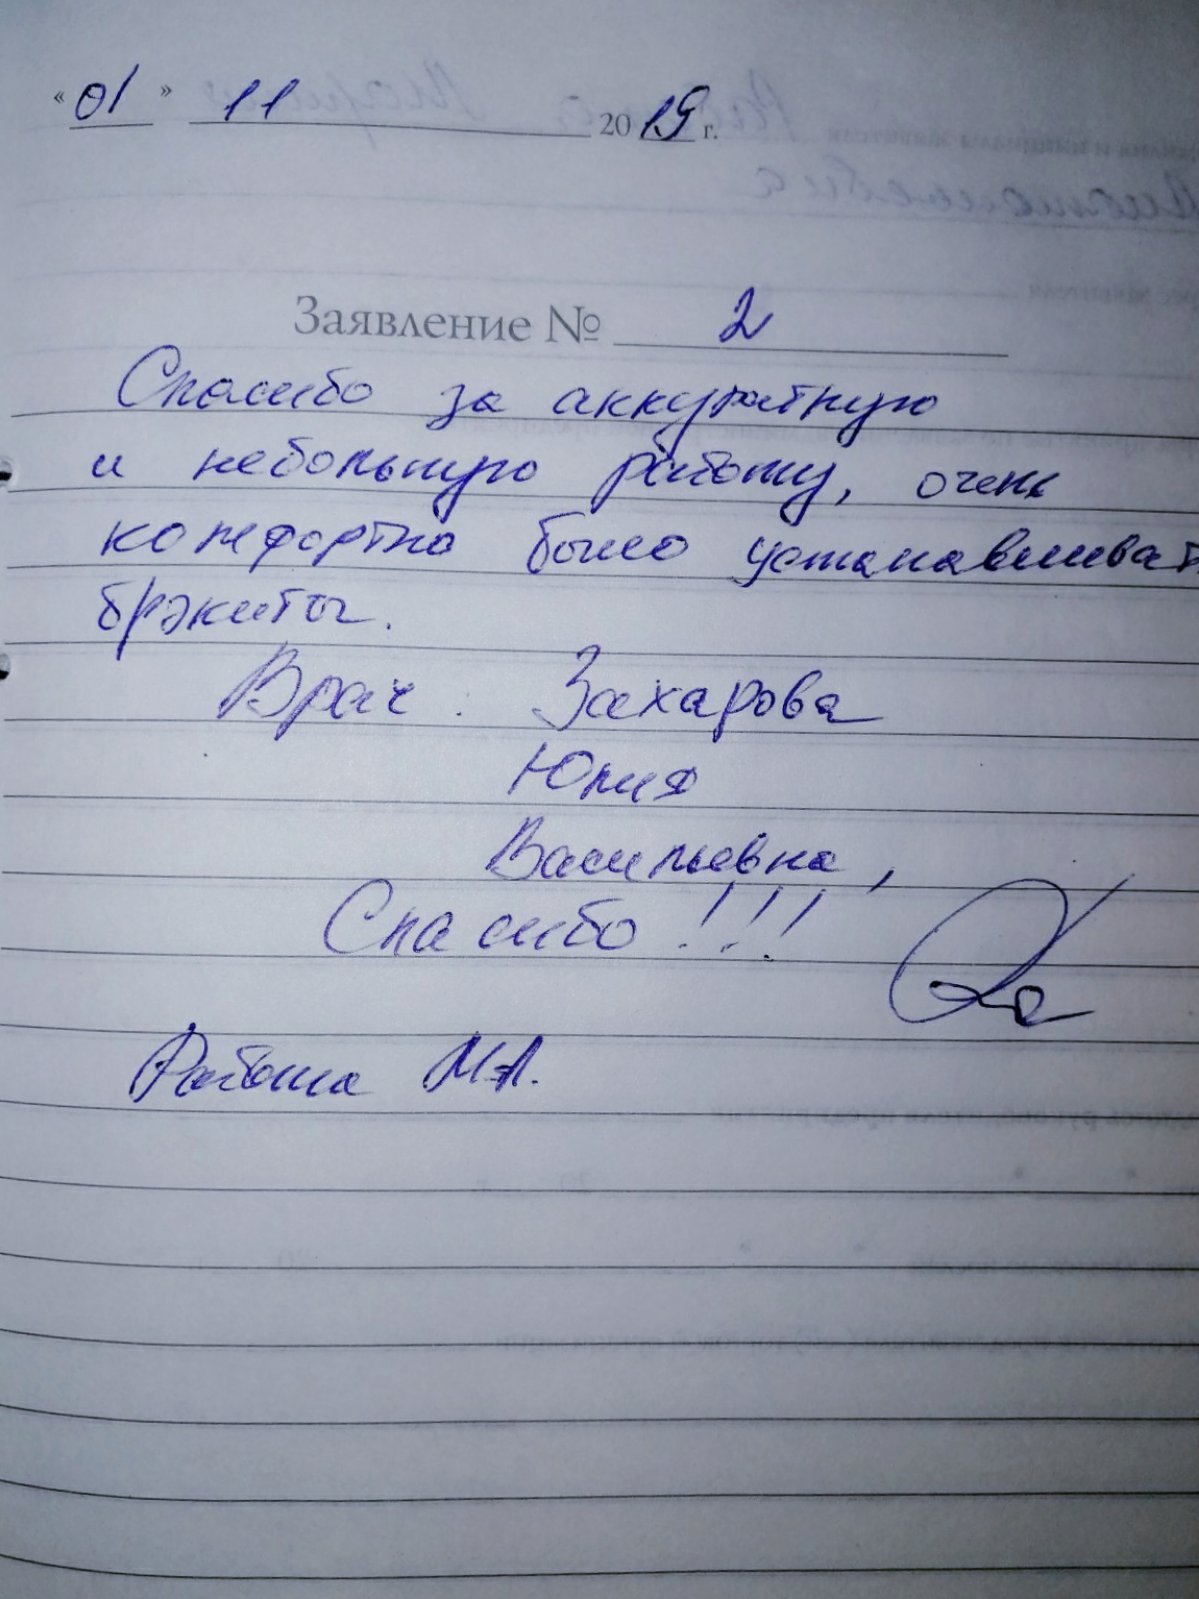 «01» 11 2019 г.
Заявление № 2
Спасибо за аккуратную
и небольную работу, очень
комфортно было устанавливать
брэкиты.
Врач. Захарова
Юлия
Васильевна,
Спасибо!!!
М.А.